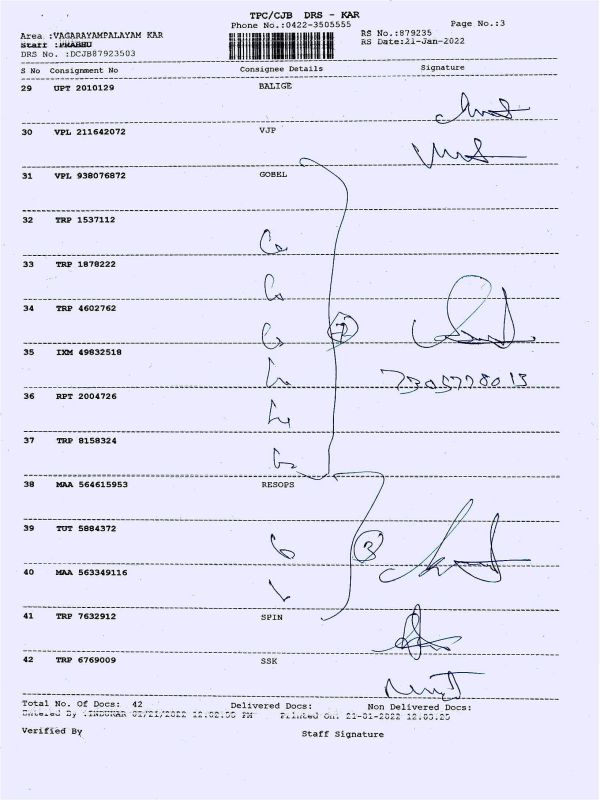 TPC/CJB DRS - KAR
Phone No.:0422-3505555 Page No.:3
Area :VAGARAYAMPALAYAM KAR RS No.:879235
Staff :PRABHU RS Date:21-Jan-2022
DRS No. :DCJB87923503
S No Consignment No Consignee Details Signature
29 UPT 2010129 BALIGE
30 VPL 211642072 VJP
31 VPL 938076872 GOBEL
32 TRP 1537112
33 TRP 1878222
34 TRP 4602762
7
35 IXM 49832518
7305778013
36 RPT 2004726
37 TRP 8158324
38 MAA 564615953 RESOPS
39 TUT 5884372
3
40 MAA 563349116
41 TRP 7632912 SPIN
42 TRP 6769009 SSK
Total No. Of Docs: 42 Delivered Docs: Non Delivered Docs:
Entered By : 01/21/2022 12:02:00 PM Printed On: 21-01-2022
Verified By Staff Signature